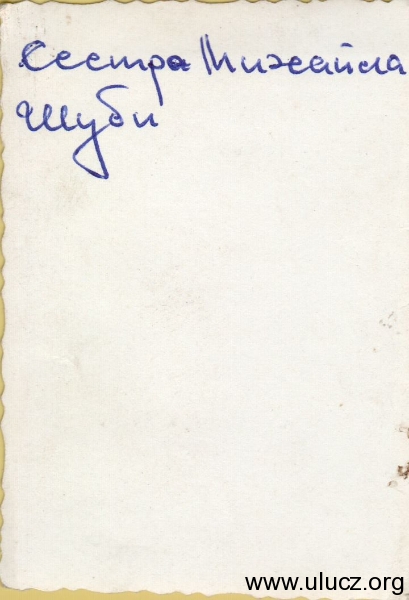 Сестра Михайла
Шуби
www.ulucz.org